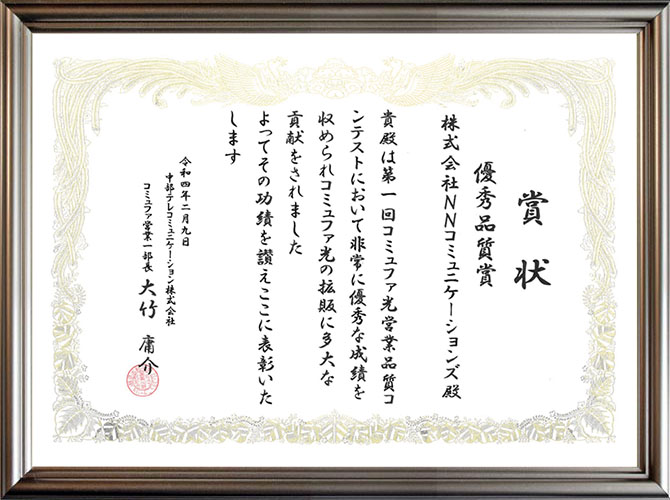 賞状
優秀品質賞
株式会社NNコミュニケーションズ殿
貴殿は第一回コミュファ光営業品質コ
ンテストにおいて非常に優秀な成績を
収められコミュファ光の拡販に多大な
貢献をされました
よってその功績を讃えここに表彰いた
します
令和四年二月九日
中部テレコミュニケーション株式会社
コミュファ営業一部長 大竹 庸介